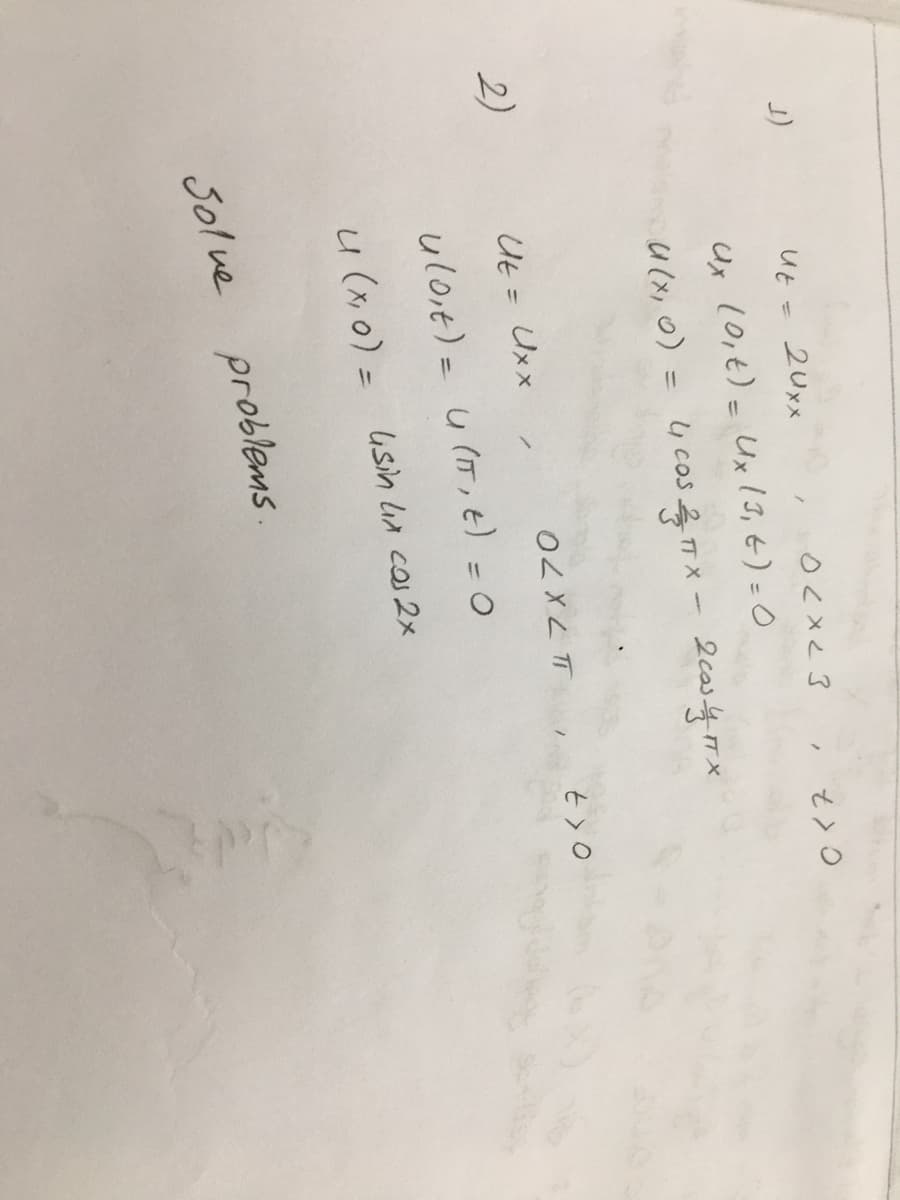 1) ut = 2uxx , 0<x<3 , t>0
ux (0,t) = ux (3,t) = 0
u(x,0) = 4 cos 2/3 πx - 2cos 4/3 πx
2) ut = uxx , 0<x<π , t>0
u(0,t) = u(π,t) = 0
u(x,0) = 4sin 4x cos 2x
Solve problems.